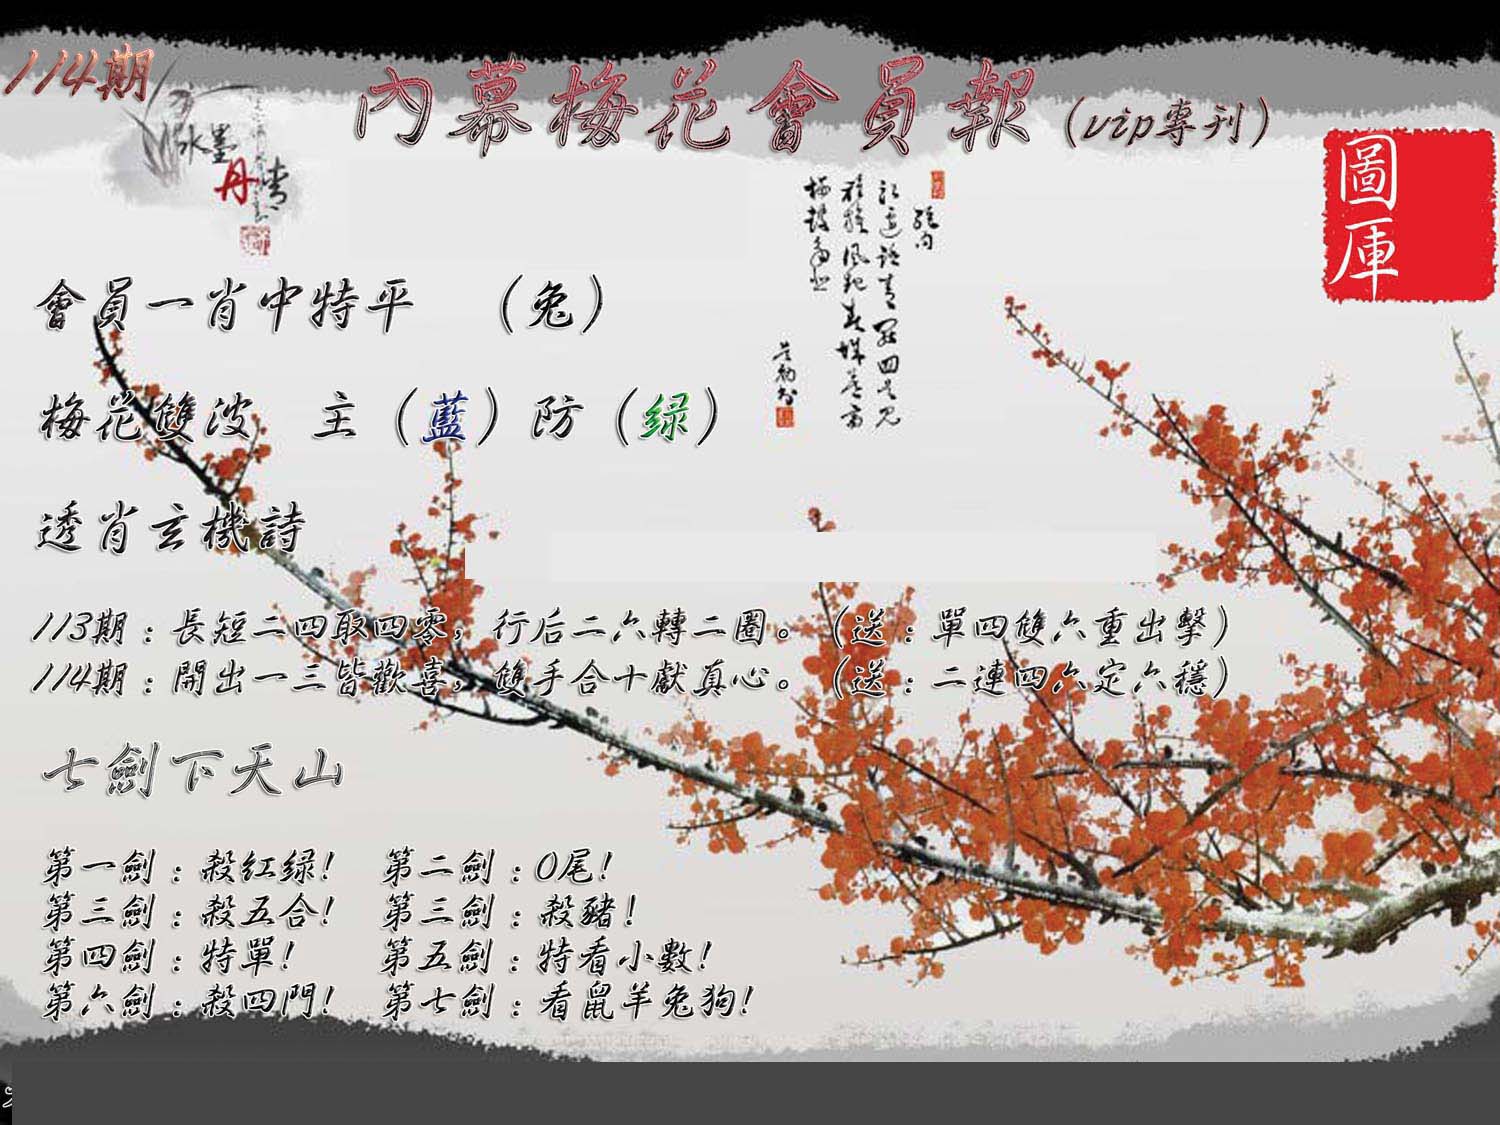 114期
內幕梅花會員報（vip專刊）
水墨
丹青
圖庫
會員一肖中特平 （兔）
梅花雙波 主（藍）防（绿）
透肖玄機詩
113期：長短二四取四零，行后二六轉二圈。（送：單四雙六重出擊）
114期：開出一三皆歡喜，雙手合十獻真心。（送：二連四六定六穩）
七劍下天山
第一劍：殺紅绿！ 第二劍：0尾！
第三劍：殺五合！ 第三劍：殺豬！
第四劍：特單！ 第五劍：特看小數！
第六劍：殺四門！ 第七劍：看鼠羊兔狗！